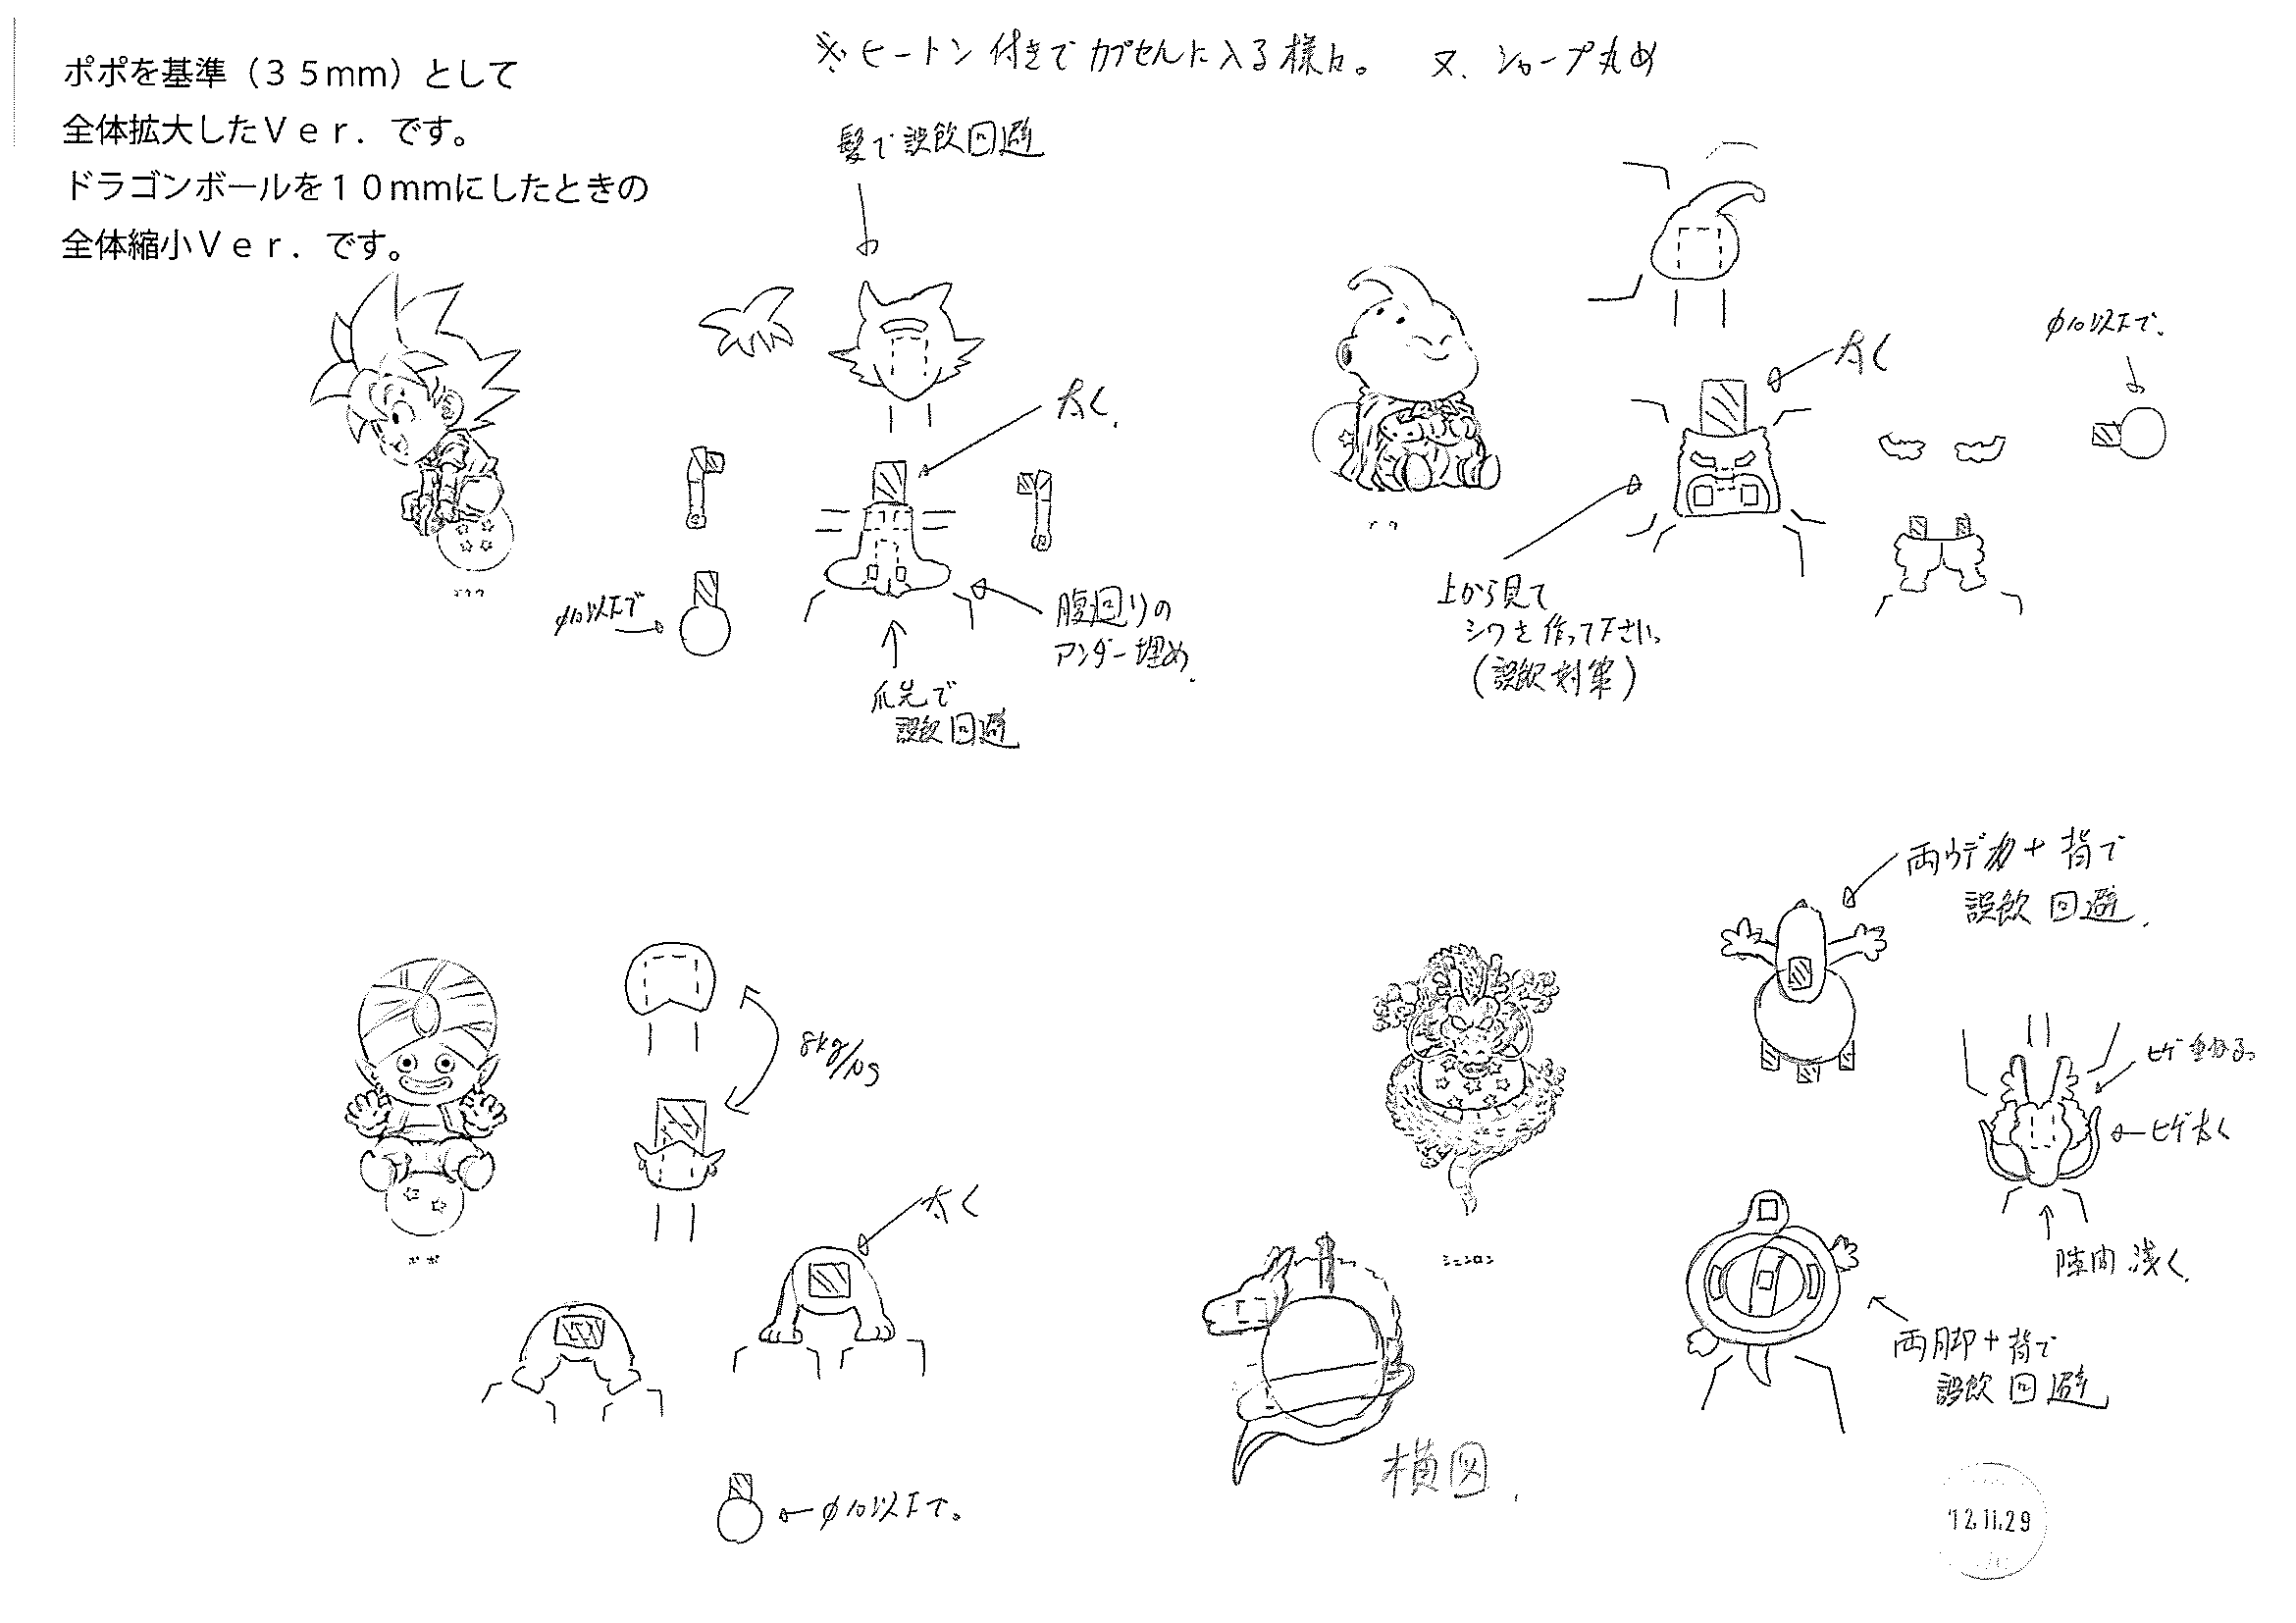 ポポを基準（３５mm）として
全体拡大したＶｅｒ．です。
ドラゴンボールを１０mmにしたときの
全体縮小Ｖｅｒ．です。
※ヒートン付きでカプセルに入る様に。 又、シャープ丸め
髪で誤飲回避
太く.
φ10以下で
腹回りの
アンダー埋め.
爪先で
誤飲回避
ゴクウ
太く
φ10以下で.
上から見て
シワを作って下さい。
(誤飲対策)
ブウ
8kg/10s
太く
ポポ
φ10以下で。
両ウデ力+背で
誤飲回避.
ヒゲ太く
隙間浅く.
両脚+背で
誤飲回避
シェンロン
横図.
'12.11.29